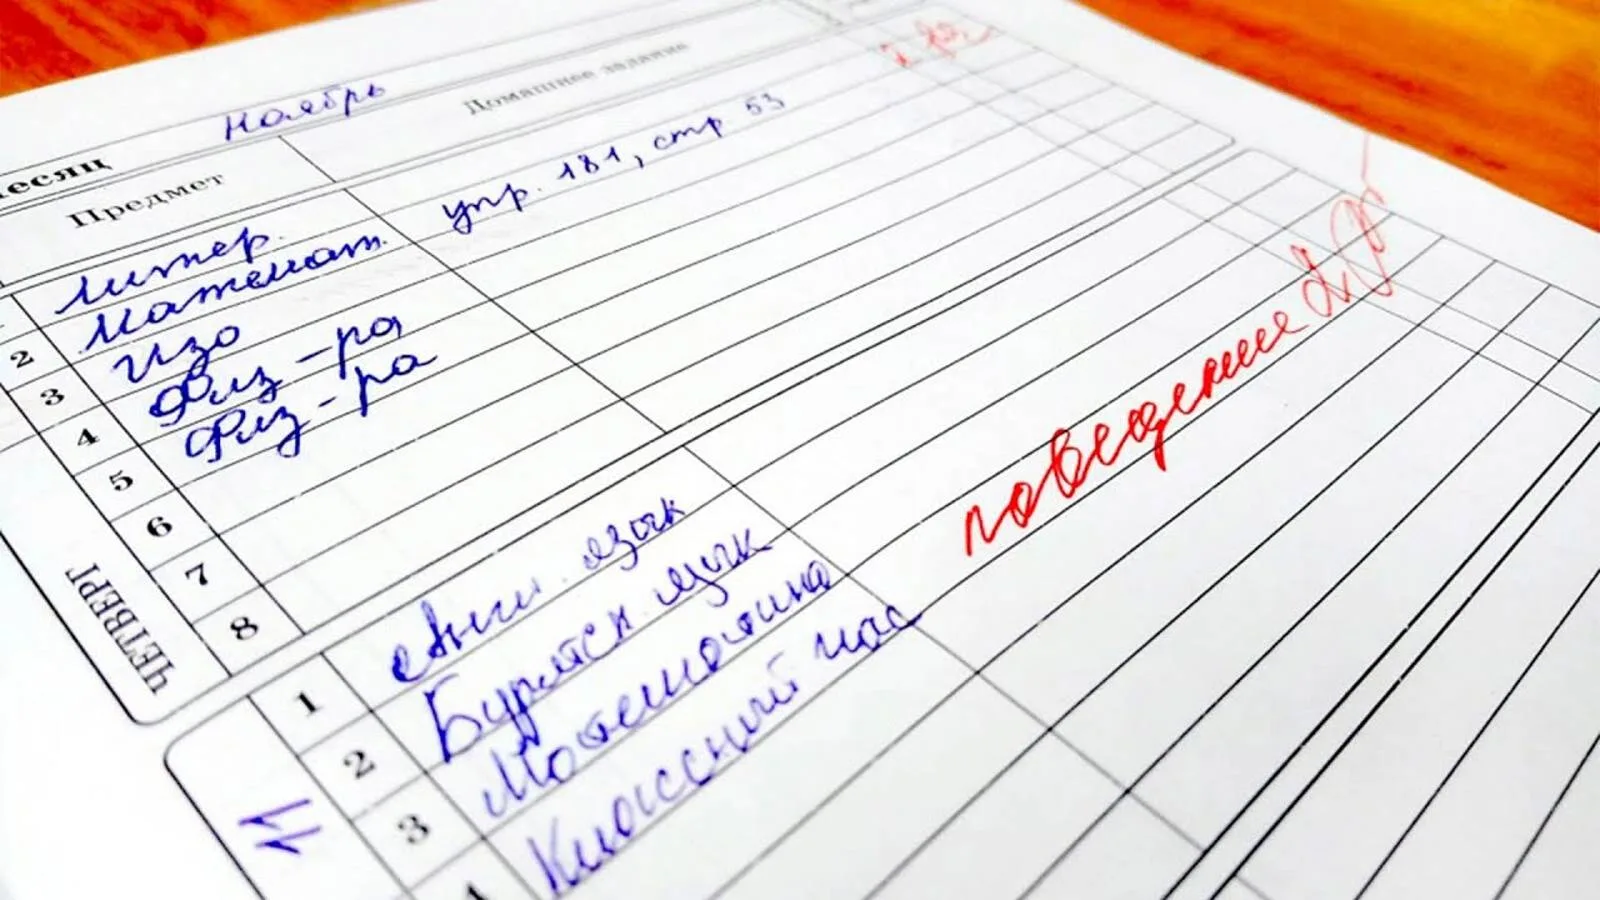 месяц ноябрь
Предмет Домашнее задание
литер.
2 Математ. упр. 181, стр 53
3 Изо
4 Физ-ра
5 Физ-ра
6
7
8
ЧЕТВЕРГ
1 Англ. язык
2 Бурятск. язык
3 Математика поведение
4 Классный час
11